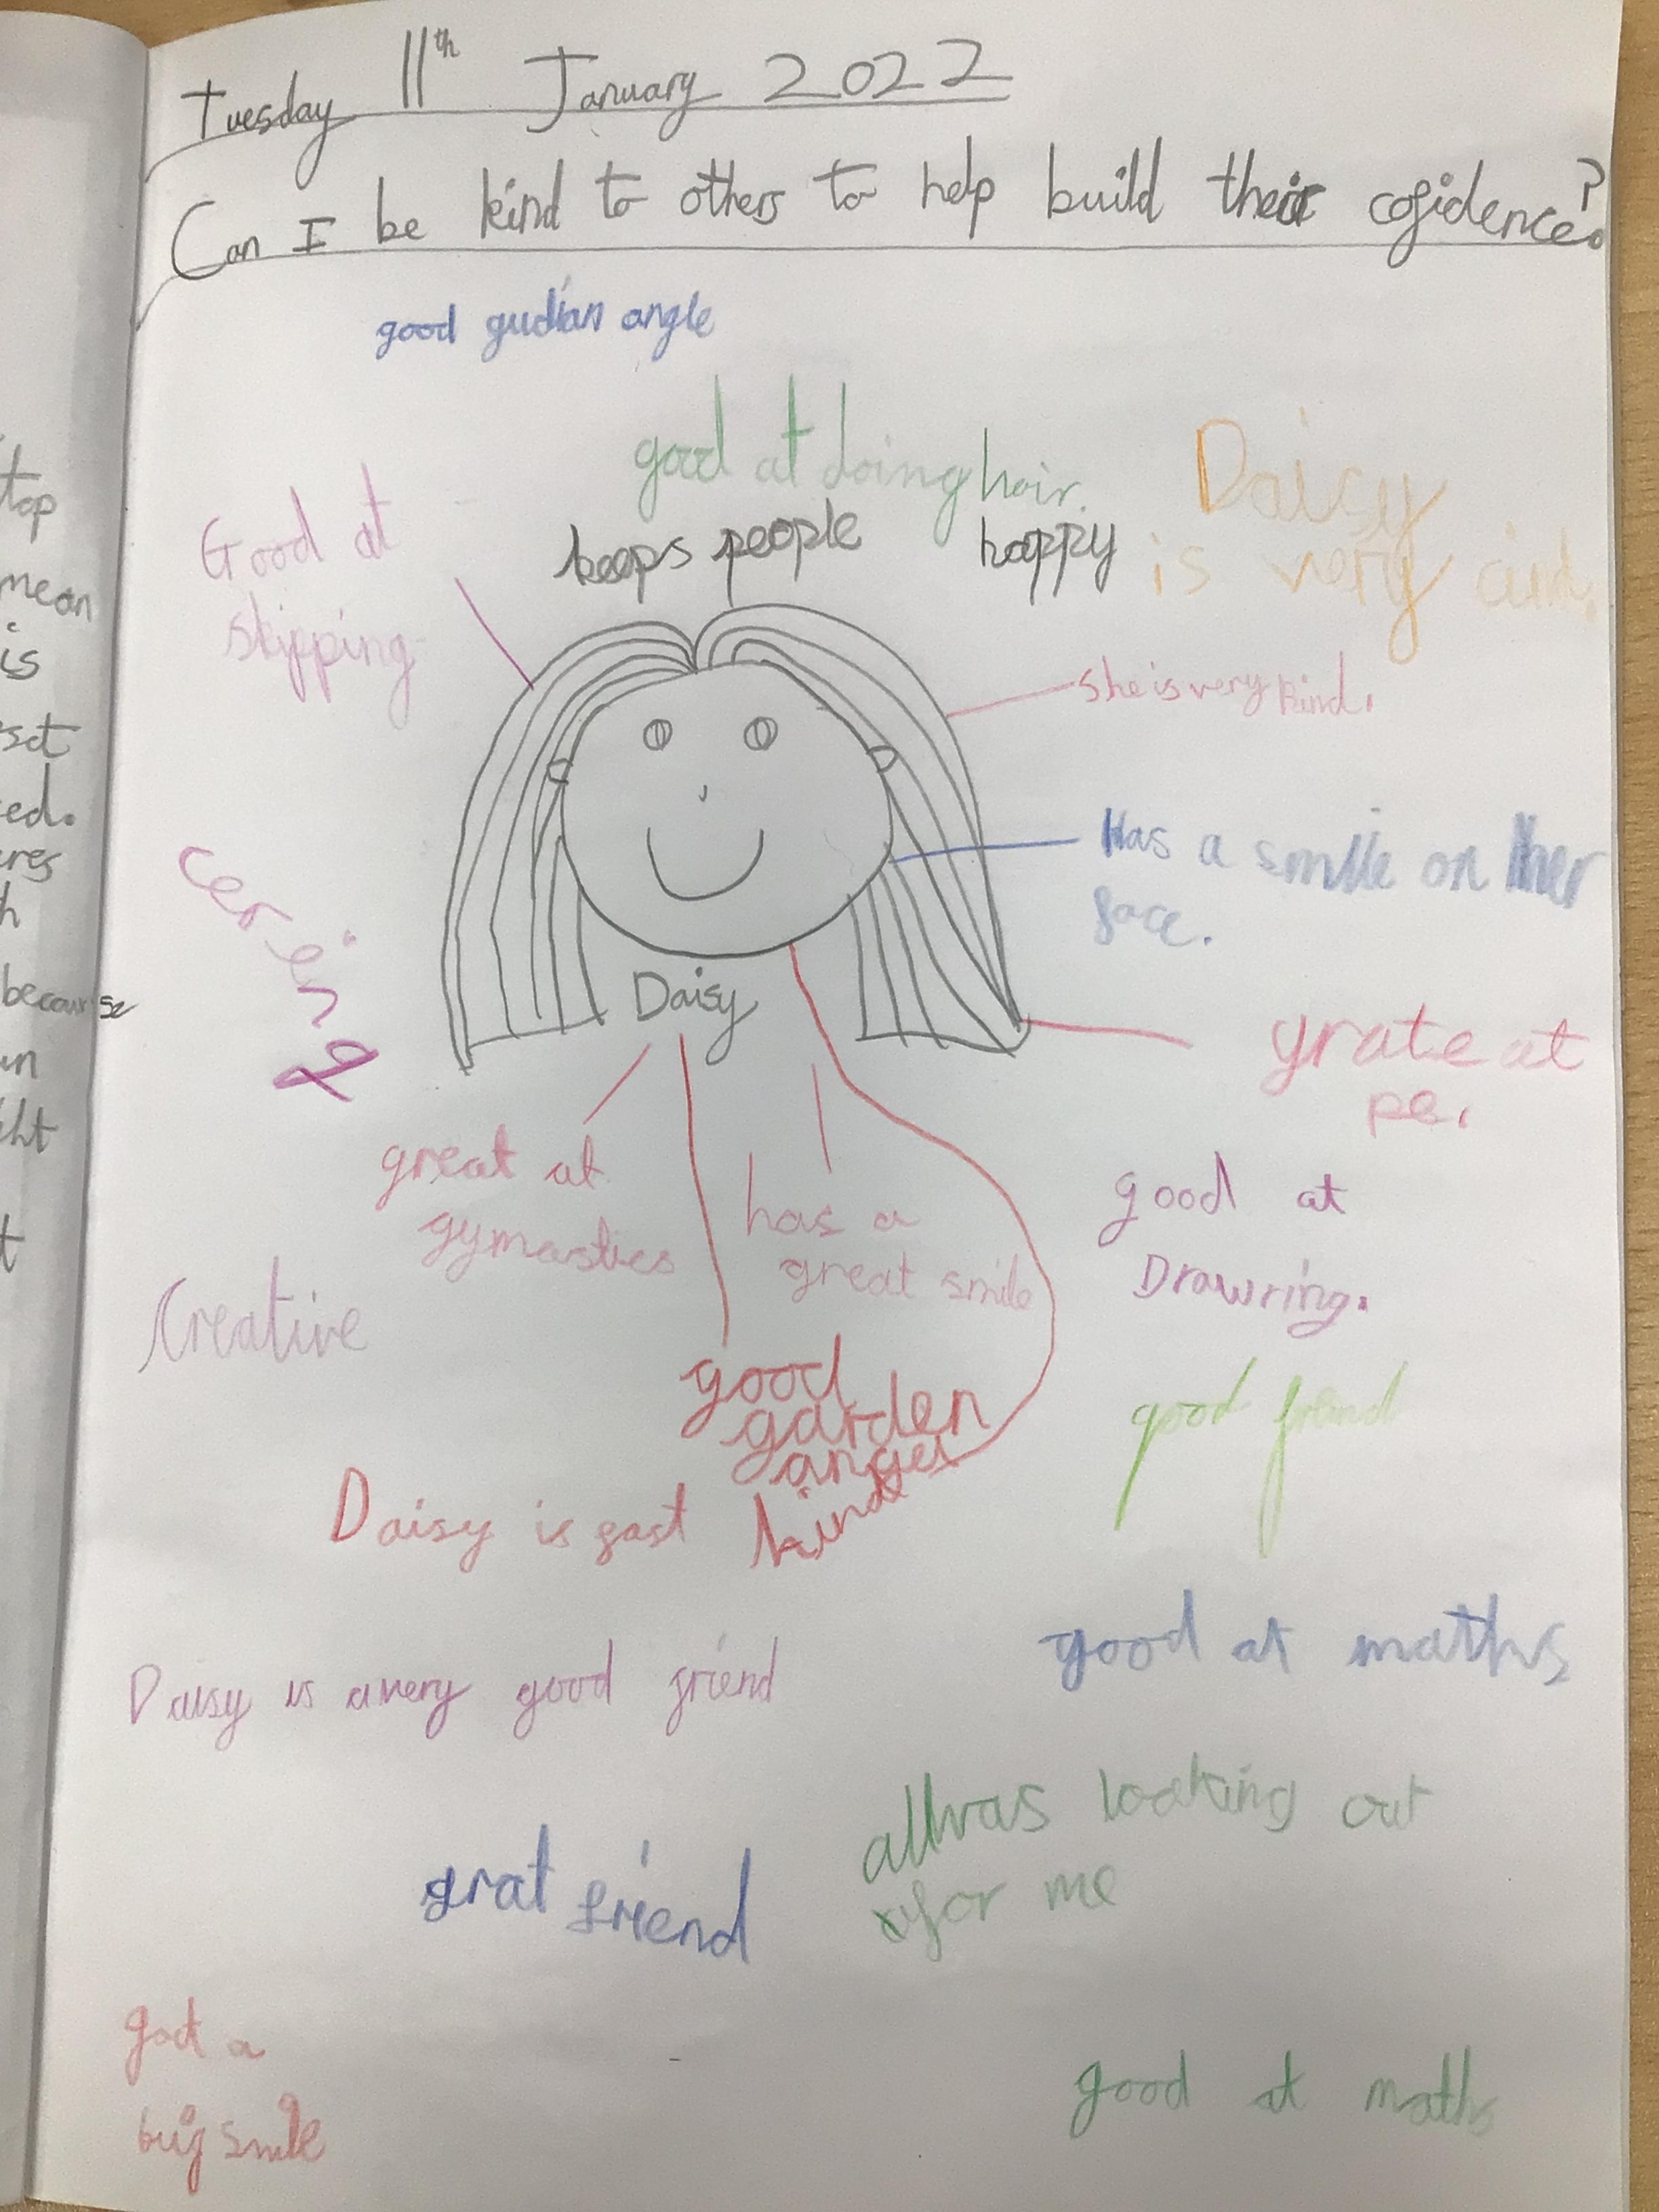 Tuesday 11th January 2022
Can I be kind to others to help build their cofidence?
good gudian angle
good at doing hair.
keeps people happy
Daisy
is very cind.
Good at
skipping
she is very kind.
Has a smile on her
face.
cering
Daisy
grate at
pe.
great at
gymastics
has a
great smile
good at
Drawring.
Creative
good
garden
anger
kind
good frend
Daisy is fast
good at maths
Daisy is a very good friend
allwas looking out
for me
grat friend
got a
big smile
good at maths
top
mean
is
set
ed.
res
h
because
un
ht
t